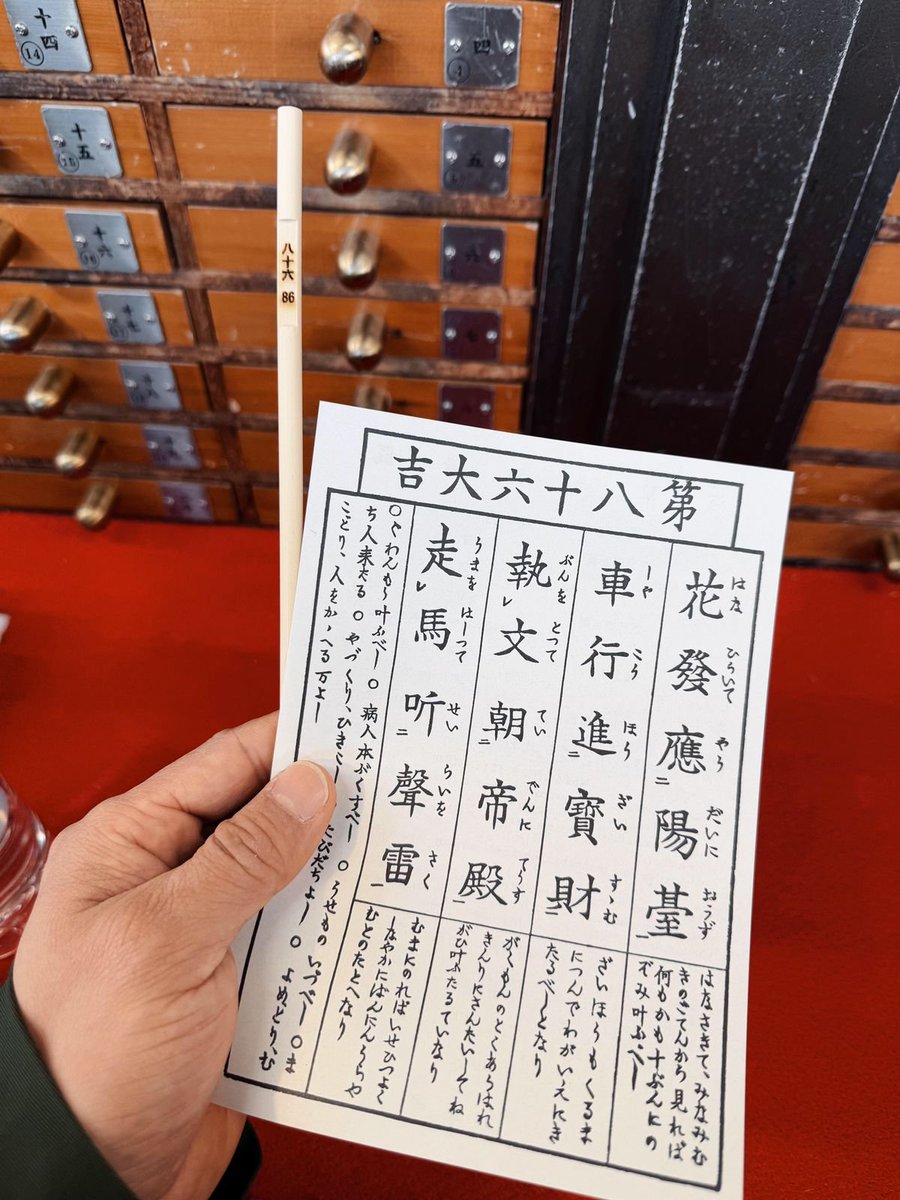 十四
14
四
4
十五
15
五
十六
16
六
十七
七
八
八十六
86
第八十六大吉
花發應二陽臺一
はな ひらいて やう だいに おうず
車行進二寶財一
しや こう ほう ざい すゝむ
執レ文朝二帝殿一
ぶんを とつて てい でんに てうす
走レ馬听二聲雷一
うまを はしつて せい らいを きく
はなさきて、みなみむ
きのごてんから見れば
何もかも十ぶんにの
ぞみ叶ふべし
ざいほうもくるま
につんでわがいえにき
たるべしとなり
がくもんのとくあらはれ
きんりにさんたいしてね
がひ叶ふたるていなり
むまにのればいせひつよく
しなやかにばんにんうらや
むとのたとへなり
○ぐわんもう叶ふべし ○病人本ぶくすべし ○うせものいづべし ○ま
ち人来たる ○やづくり、ひきこし、たびだちよし ○よめとり、む
ことり、人をかゝへる万よし